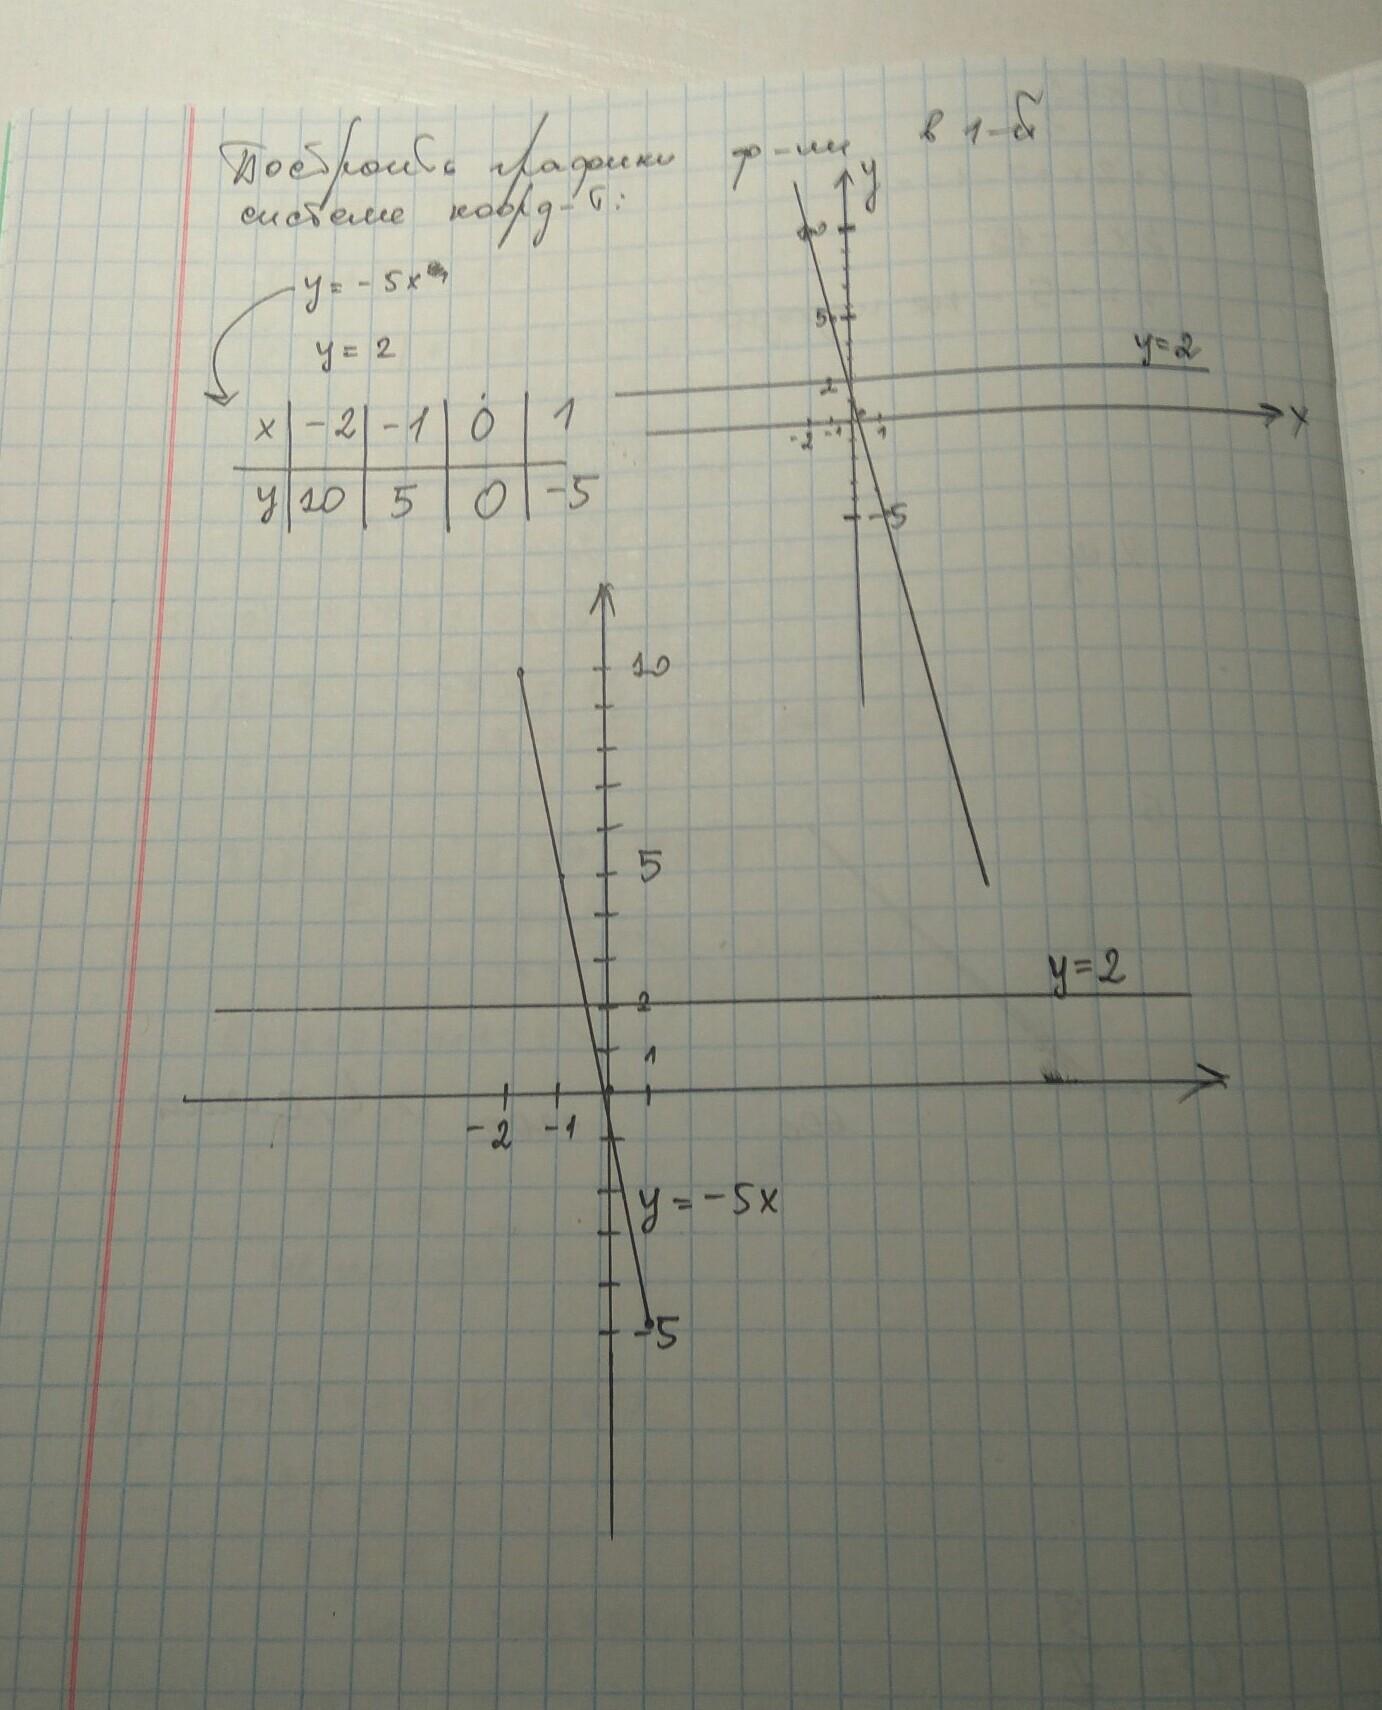 Построить графики ф-ии в 1-й
системе коорд-т:
y = -5x
y = 2
x -2 -1 0 1
y 10 5 0 -5
y
10
5
y=2
2
x
-2 -1 1
-5
10
5
y=2
2
1
-2 -1
y = -5x
-5